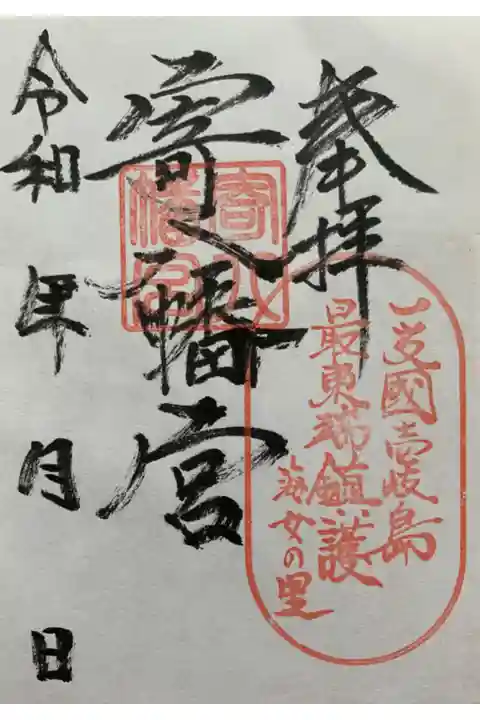 奉拝
一支國壱岐島
最東端鎮護
海女の里
寄八幡宮
寄八
幡宮
令和 年 月 日